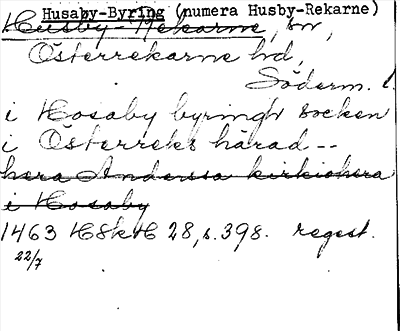 Husaby-Byring (numera Husby-Rekarne)
Husby Rekarne, sn,
Österrekarne hd,
Söderm. l.
i Hosaby byringh socken
i Österreks härad--
herra Andersa kirkiohera
i Hosaby
1463 HSkH 28, s. 398. regest.
22/7